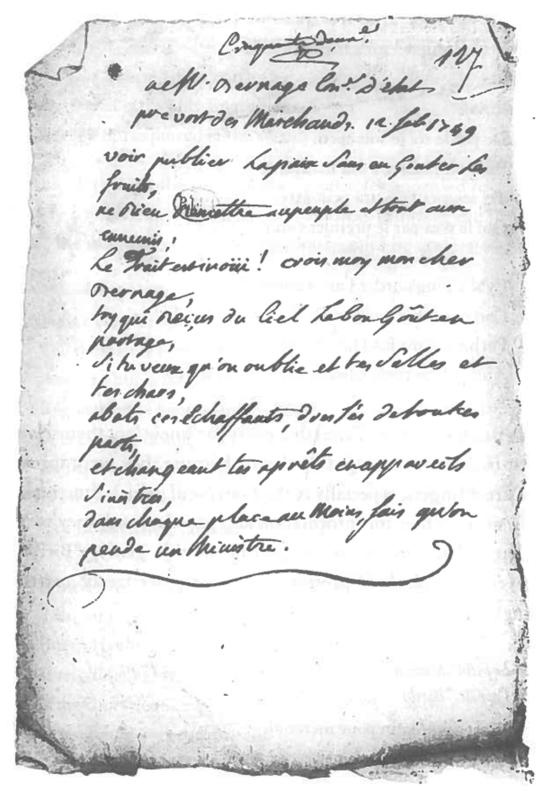 Cinquante deux.e
127
a M. Bernage Con.er d'etat
prevost des Marchands. 12 feb 1749
voir publier la paix sans en Gouter les
fruits,
ne rien au peuple et tout aux
ennemis;
Le Trait est inoüi! crois moy mon cher
Bernage,
toy qui reçus du Ciel le bon Goût en
partage,
si tu veux qu'on oublie et tes salles et
tes chars,
abats ces Echaffauts, dressés de toutes
parts,
et changeant tes aprêts en appareils
sinistre,
dans chaque place au Moins fais qu'on
pende un Ministre.